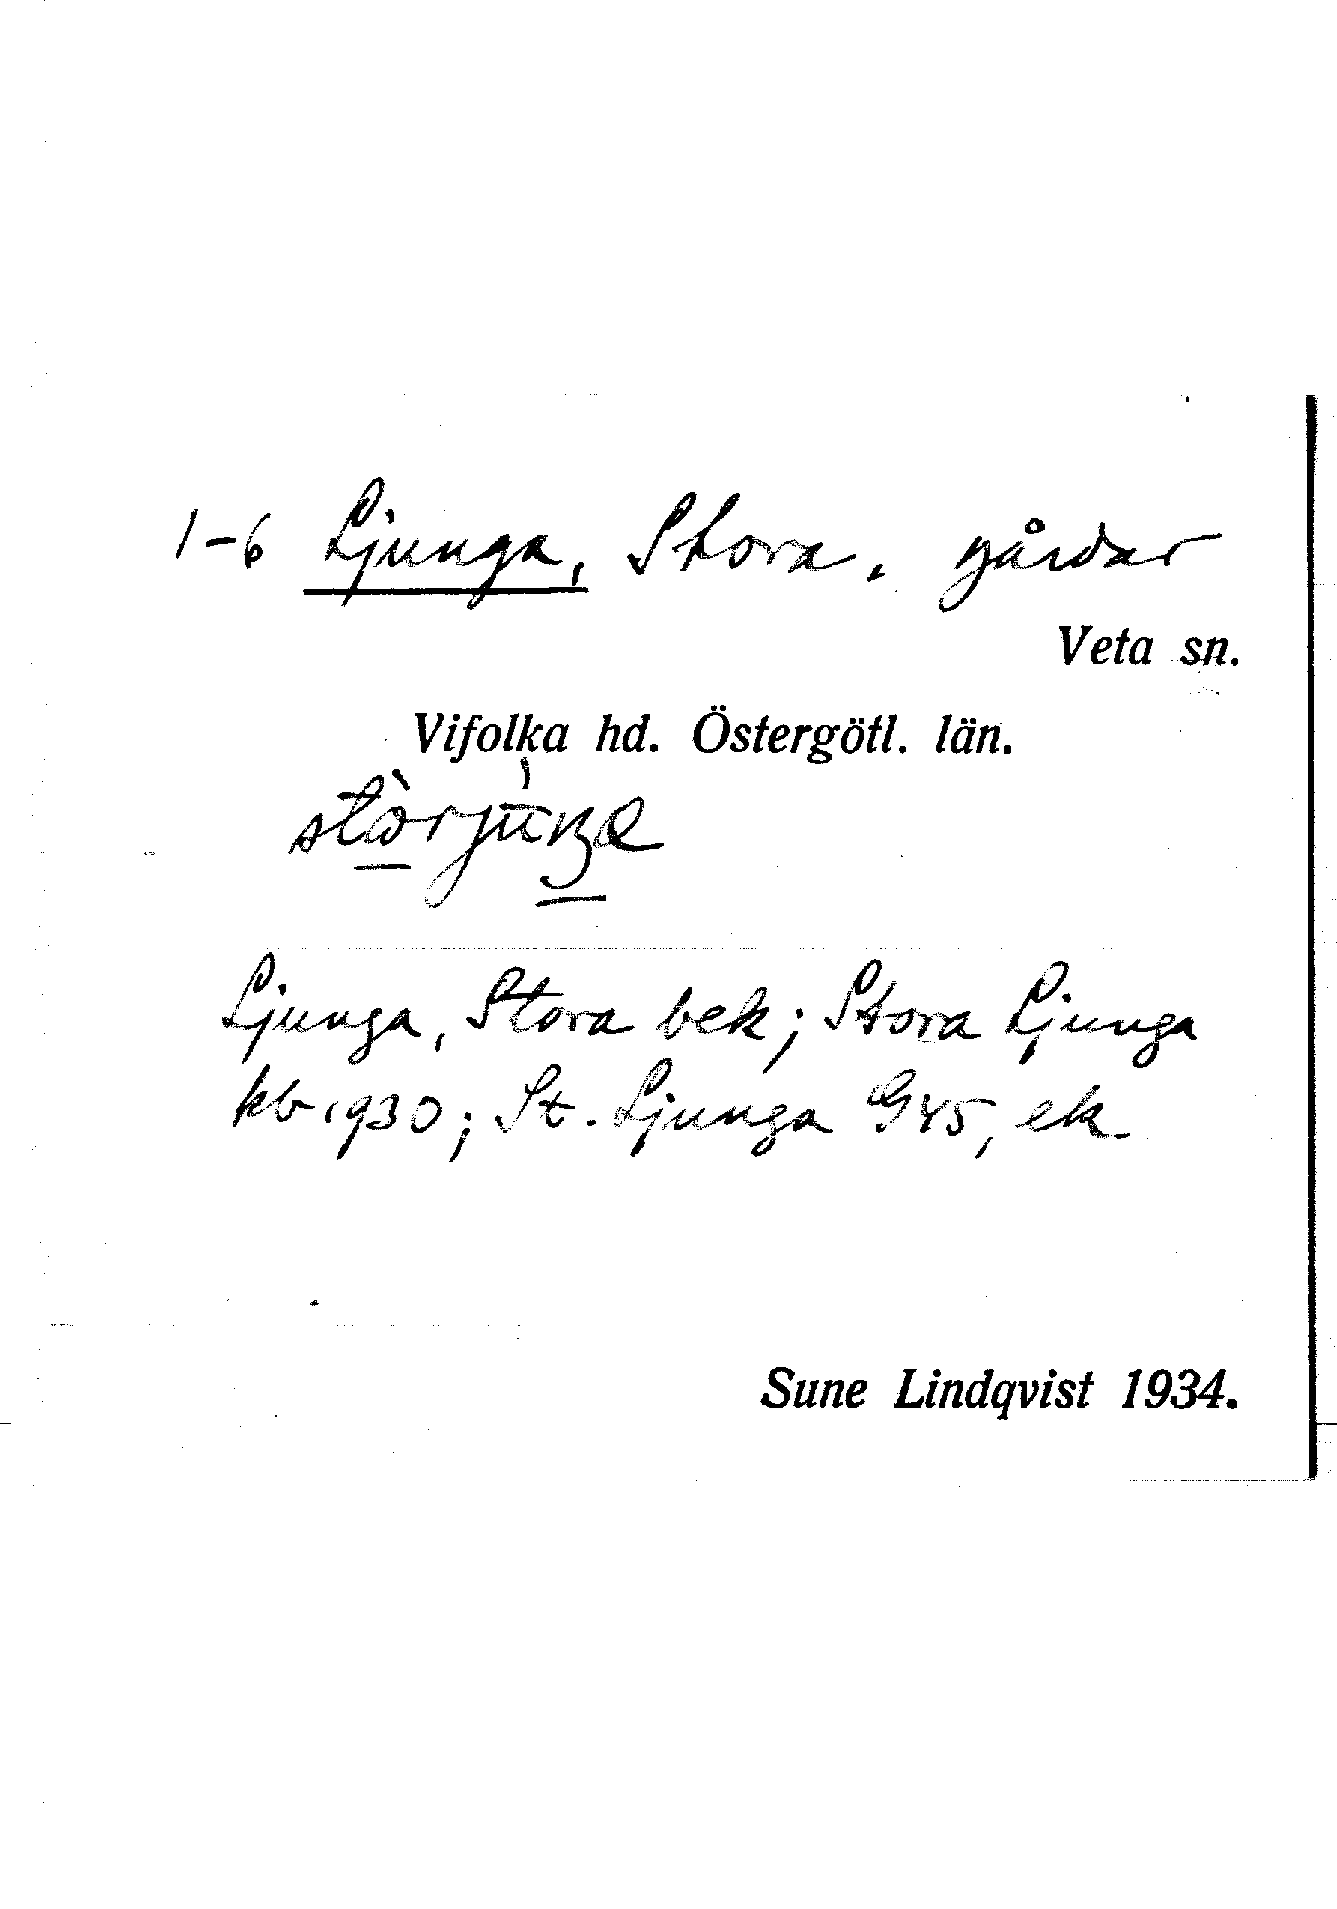 1-6 Ljunga, Stora. gårdar
Veta sn.
Vifolka hd. Östergötl. län.
Ljunga, Stora bek; Stora Ljunga
kb 1930; St. Ljunga G45, ek.
Sune Lindqvist 1934.